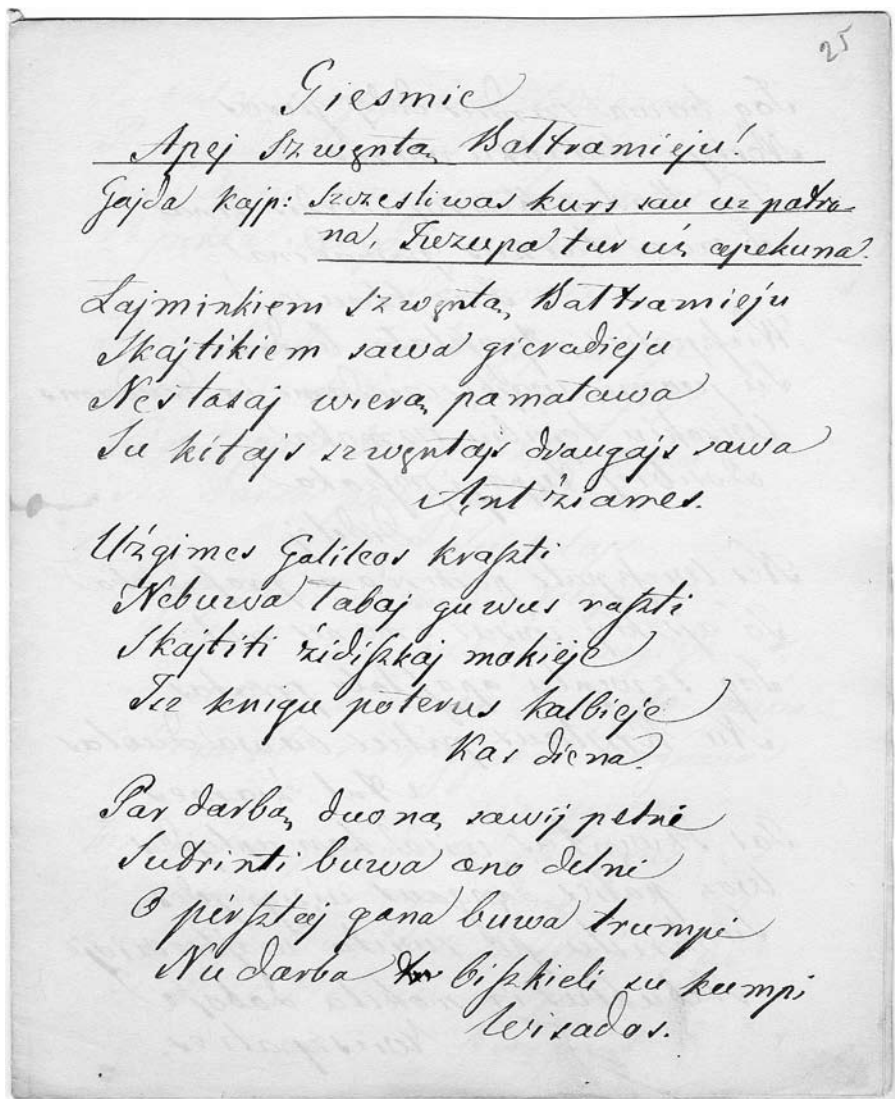 25
Giesmie
Apej Szwęntą Baltramieju!
Gajda kajp: Szczesliwas kurs sau uz patro-
na, Juzupa tur uź apekuna.
Łajminkiem Szwęntą Baltramieju
Skajtikiem sawa gieradieju
Nes tasaj wierą pamatawa
Su kitajs szwęntajs draugajs sawa
Ant źiames.
Użgimes Galileos kraszti
Nebuwa labaj guwus raszti
Skajtiti źidiszkaj mokieje
Isz knigu poterus kalbieje
Kas diena.
Par darbą duoną sawij pelne
Sudrinti buwa ano delni
O pirsztaj gana buwa trumpi
Nu darba biszkieli su kumpi
Wisados.